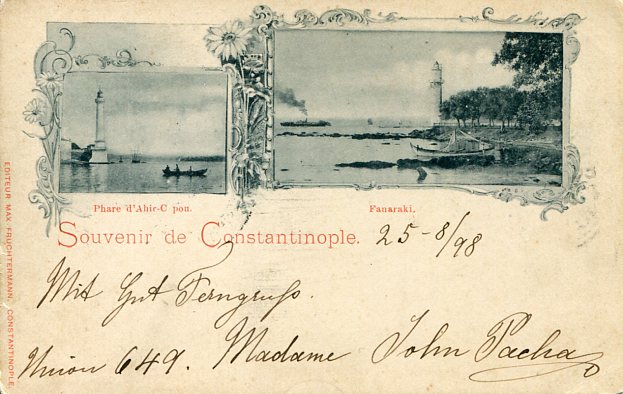 Phare d'Ahir-C pou.
Fanaraki.
Souvenir de Constantinople.
25-8/98
Mit Gut Ferngruß.
Union 649. Madame John Pacha
EDITEUR MAX FRUCHTERMANN, CONSTANTINOPLE.